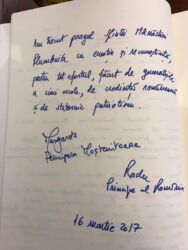 Am trecut pragul Sfintei Mănăstiri
Plumbuita cu emoție și recunoștință,
pentru tot efortul, făcut de generațiile
a cinci secole, de credință românească
și de statornic patriotism.
Margareta
Principesa Moștenitoare
Radu
Principe al României
16 martie 2017